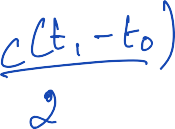 c(t₁ - t₀)
2